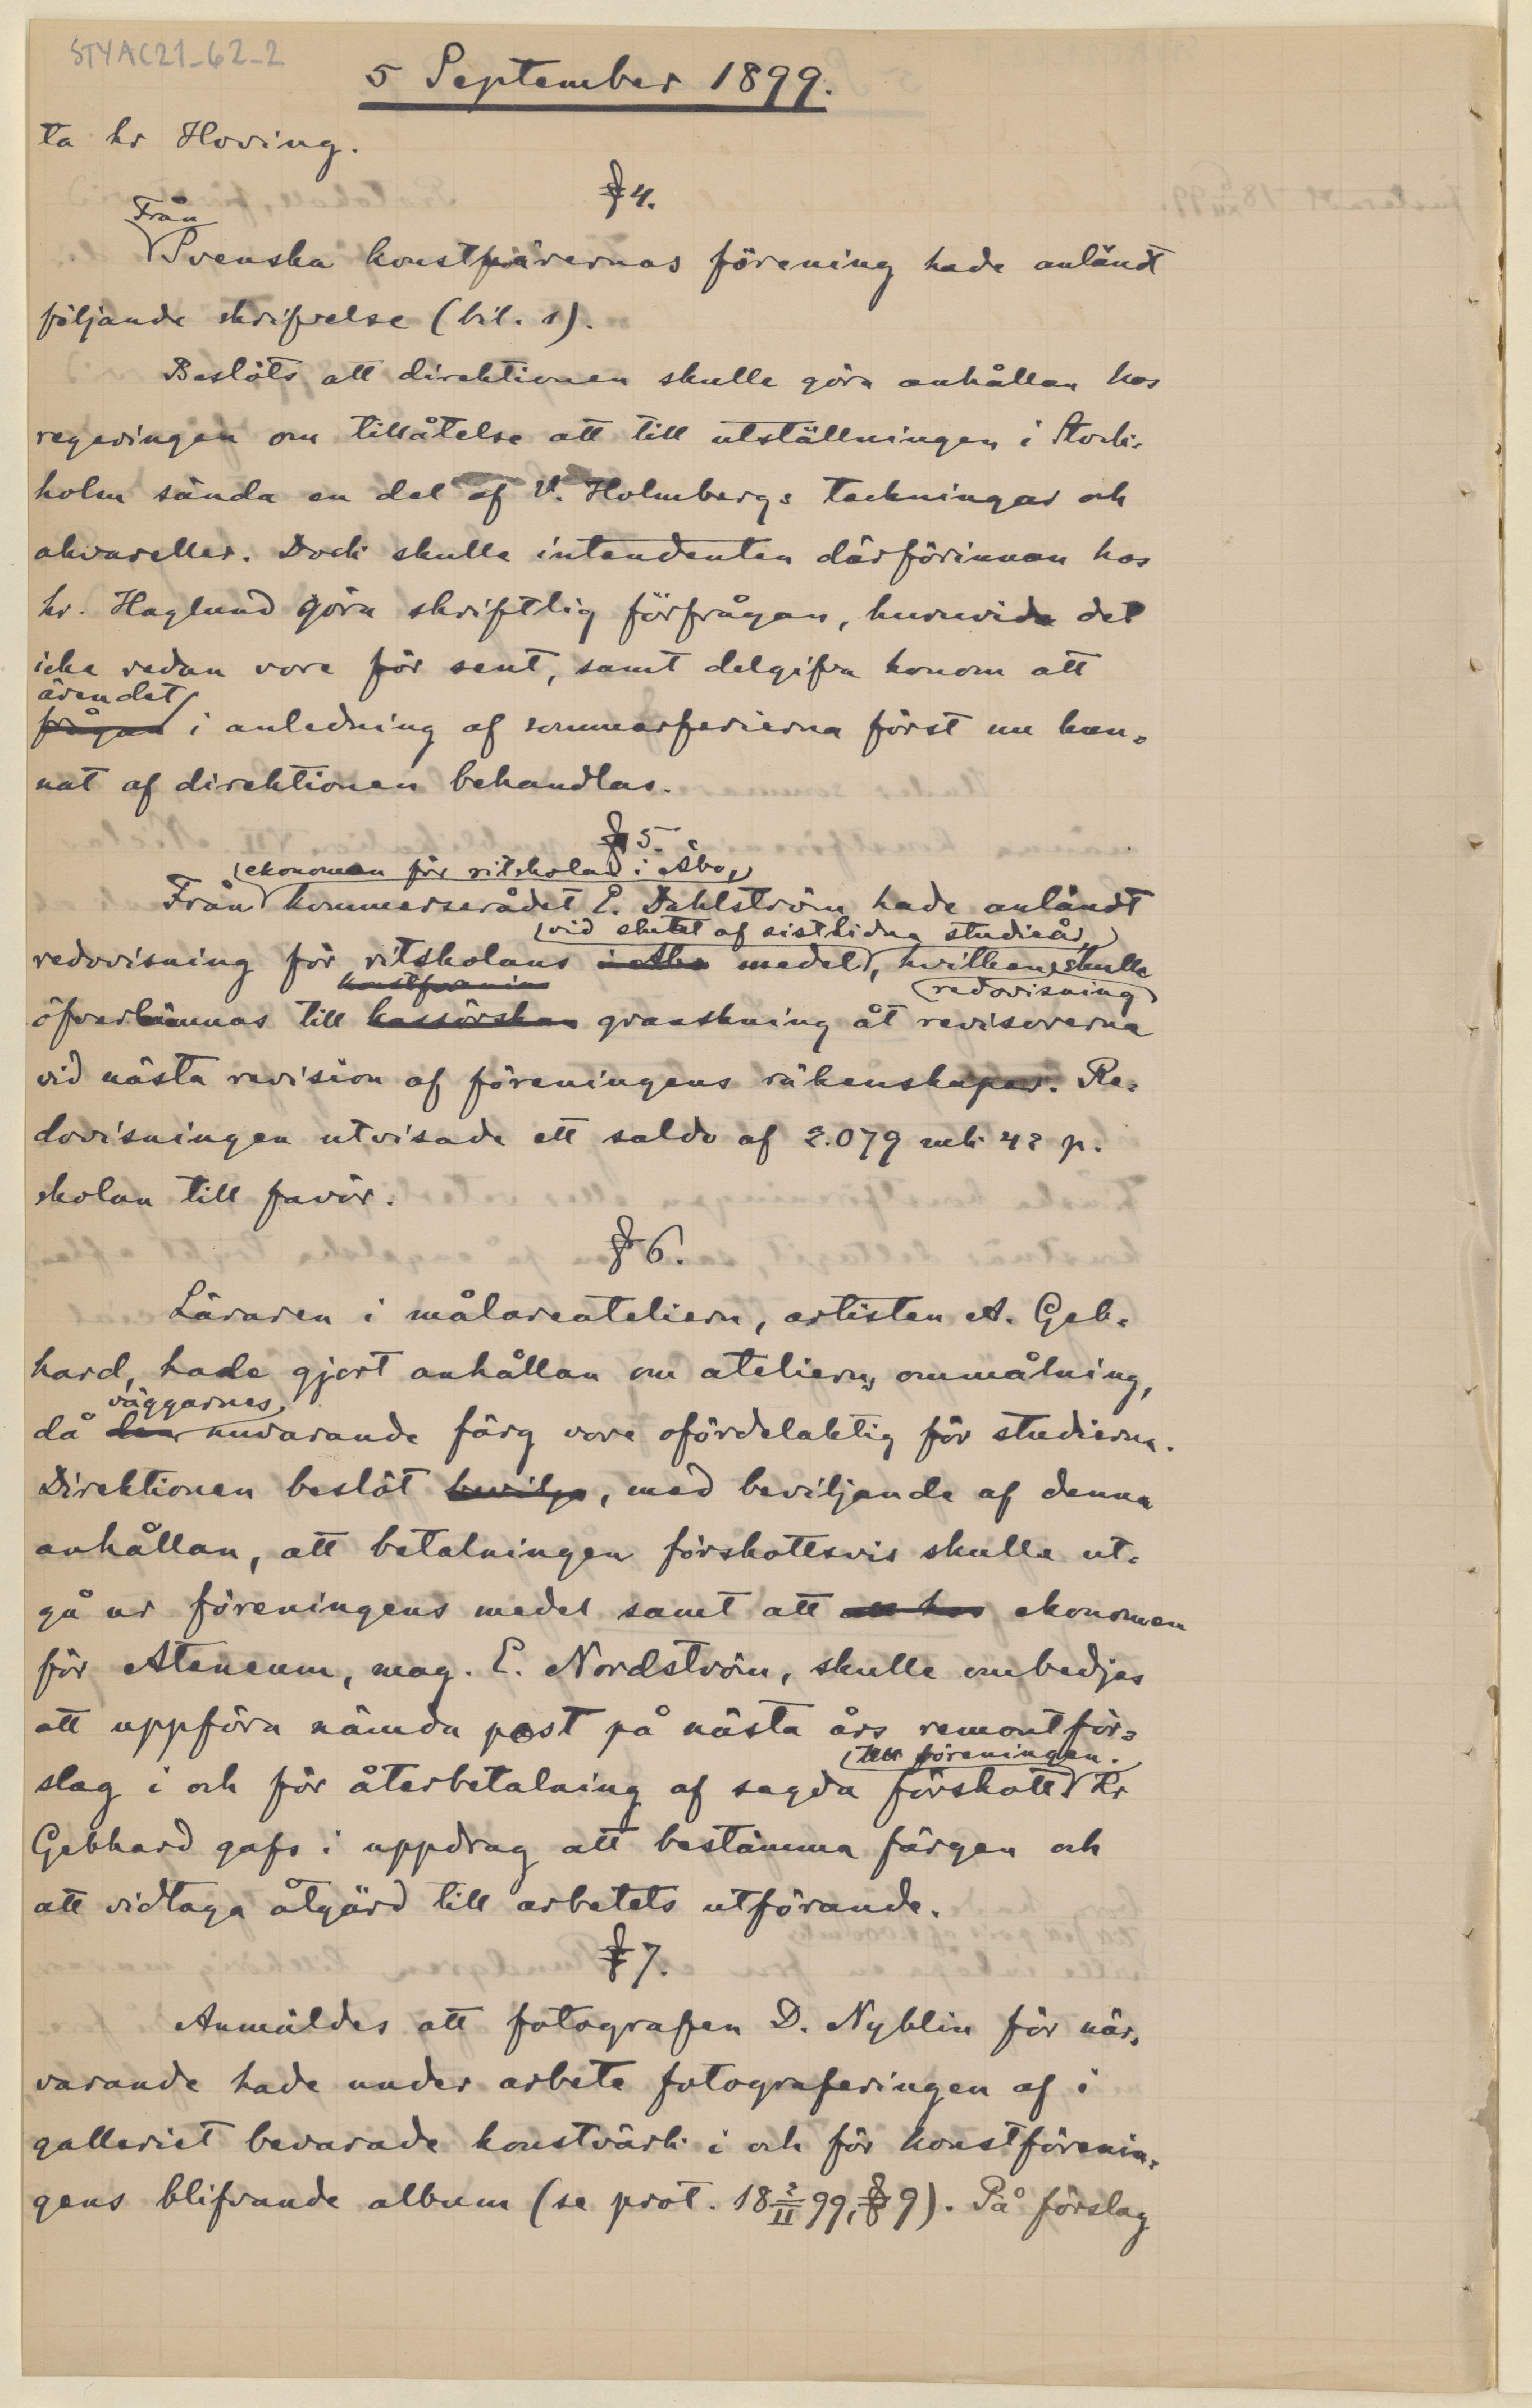 STYAC21_62_2
5 September 1899.
ta hr Hoving.
§ 4.
Från
Svenska konstnärernas förening hade anländt
följande skrifvelse (bil. 1).
Beslöts att direktionen skulle göra anhållan hos
regeringen om tillåtelse att till utställningen i Stock-
holm sända en del af V. Holmbergs teckningar och
akvareller. Dock skulle intendenten därförinnan hos
hr. Haglund göra skriftlig förfrågan, huruvida det
icke redan vore för sent, samt delgifva honom att
ärendet
frågan i anledning af sommarferierna först nu hun-
nat af direktionen behandlas.
§ 5.
ekonomen för ritskolan i Åbo,
Från kommerserådet E. Dahlström hade anländt
vid slutet af sistlidna studieår,
redovisning för ritskolans i Åbo medel, hvilken skulle
konstförenin redovisning
öfverlämnas till kassörskan granskning åt revisorerna
vid nästa revision af föreningens räkenskaper. Re-
dovisningen utvisade ett saldo af 2.079 mk 42 p.
skolan till favör.
§ 6.
Läraren i målareateliern, artisten A. Geb-
hard, hade gjort anhållan om atelierns ommålning,
väggarnes
då den nuvarande färg vore ofördelaktig för studierna.
Direktionen beslöt bevilja, med beviljande af denna
anhållan, att betalningen förskottsvis skulle ut-
gå ur föreningens medel samt att att hos ekonomen
för Ateneum, mag. E. Nordström, skulle ombedjas
att uppföra nämda post på nästa års remontför-
till föreningen.
slag i och för återbetalning af sagda förskott Hr
Gebhard gafs i uppdrag att bestämma färgen och
att vidtaga åtgärd till arbetets utförande.
§ 7.
Anmäldes att fotografen D. Nyblin för när-
varande hade under arbete fotograferingen af i
galleriet bevarade konstvärk i och för konstförenin-
gens blifvande album (se prot. 18 2/II 99, § 9). På förslag